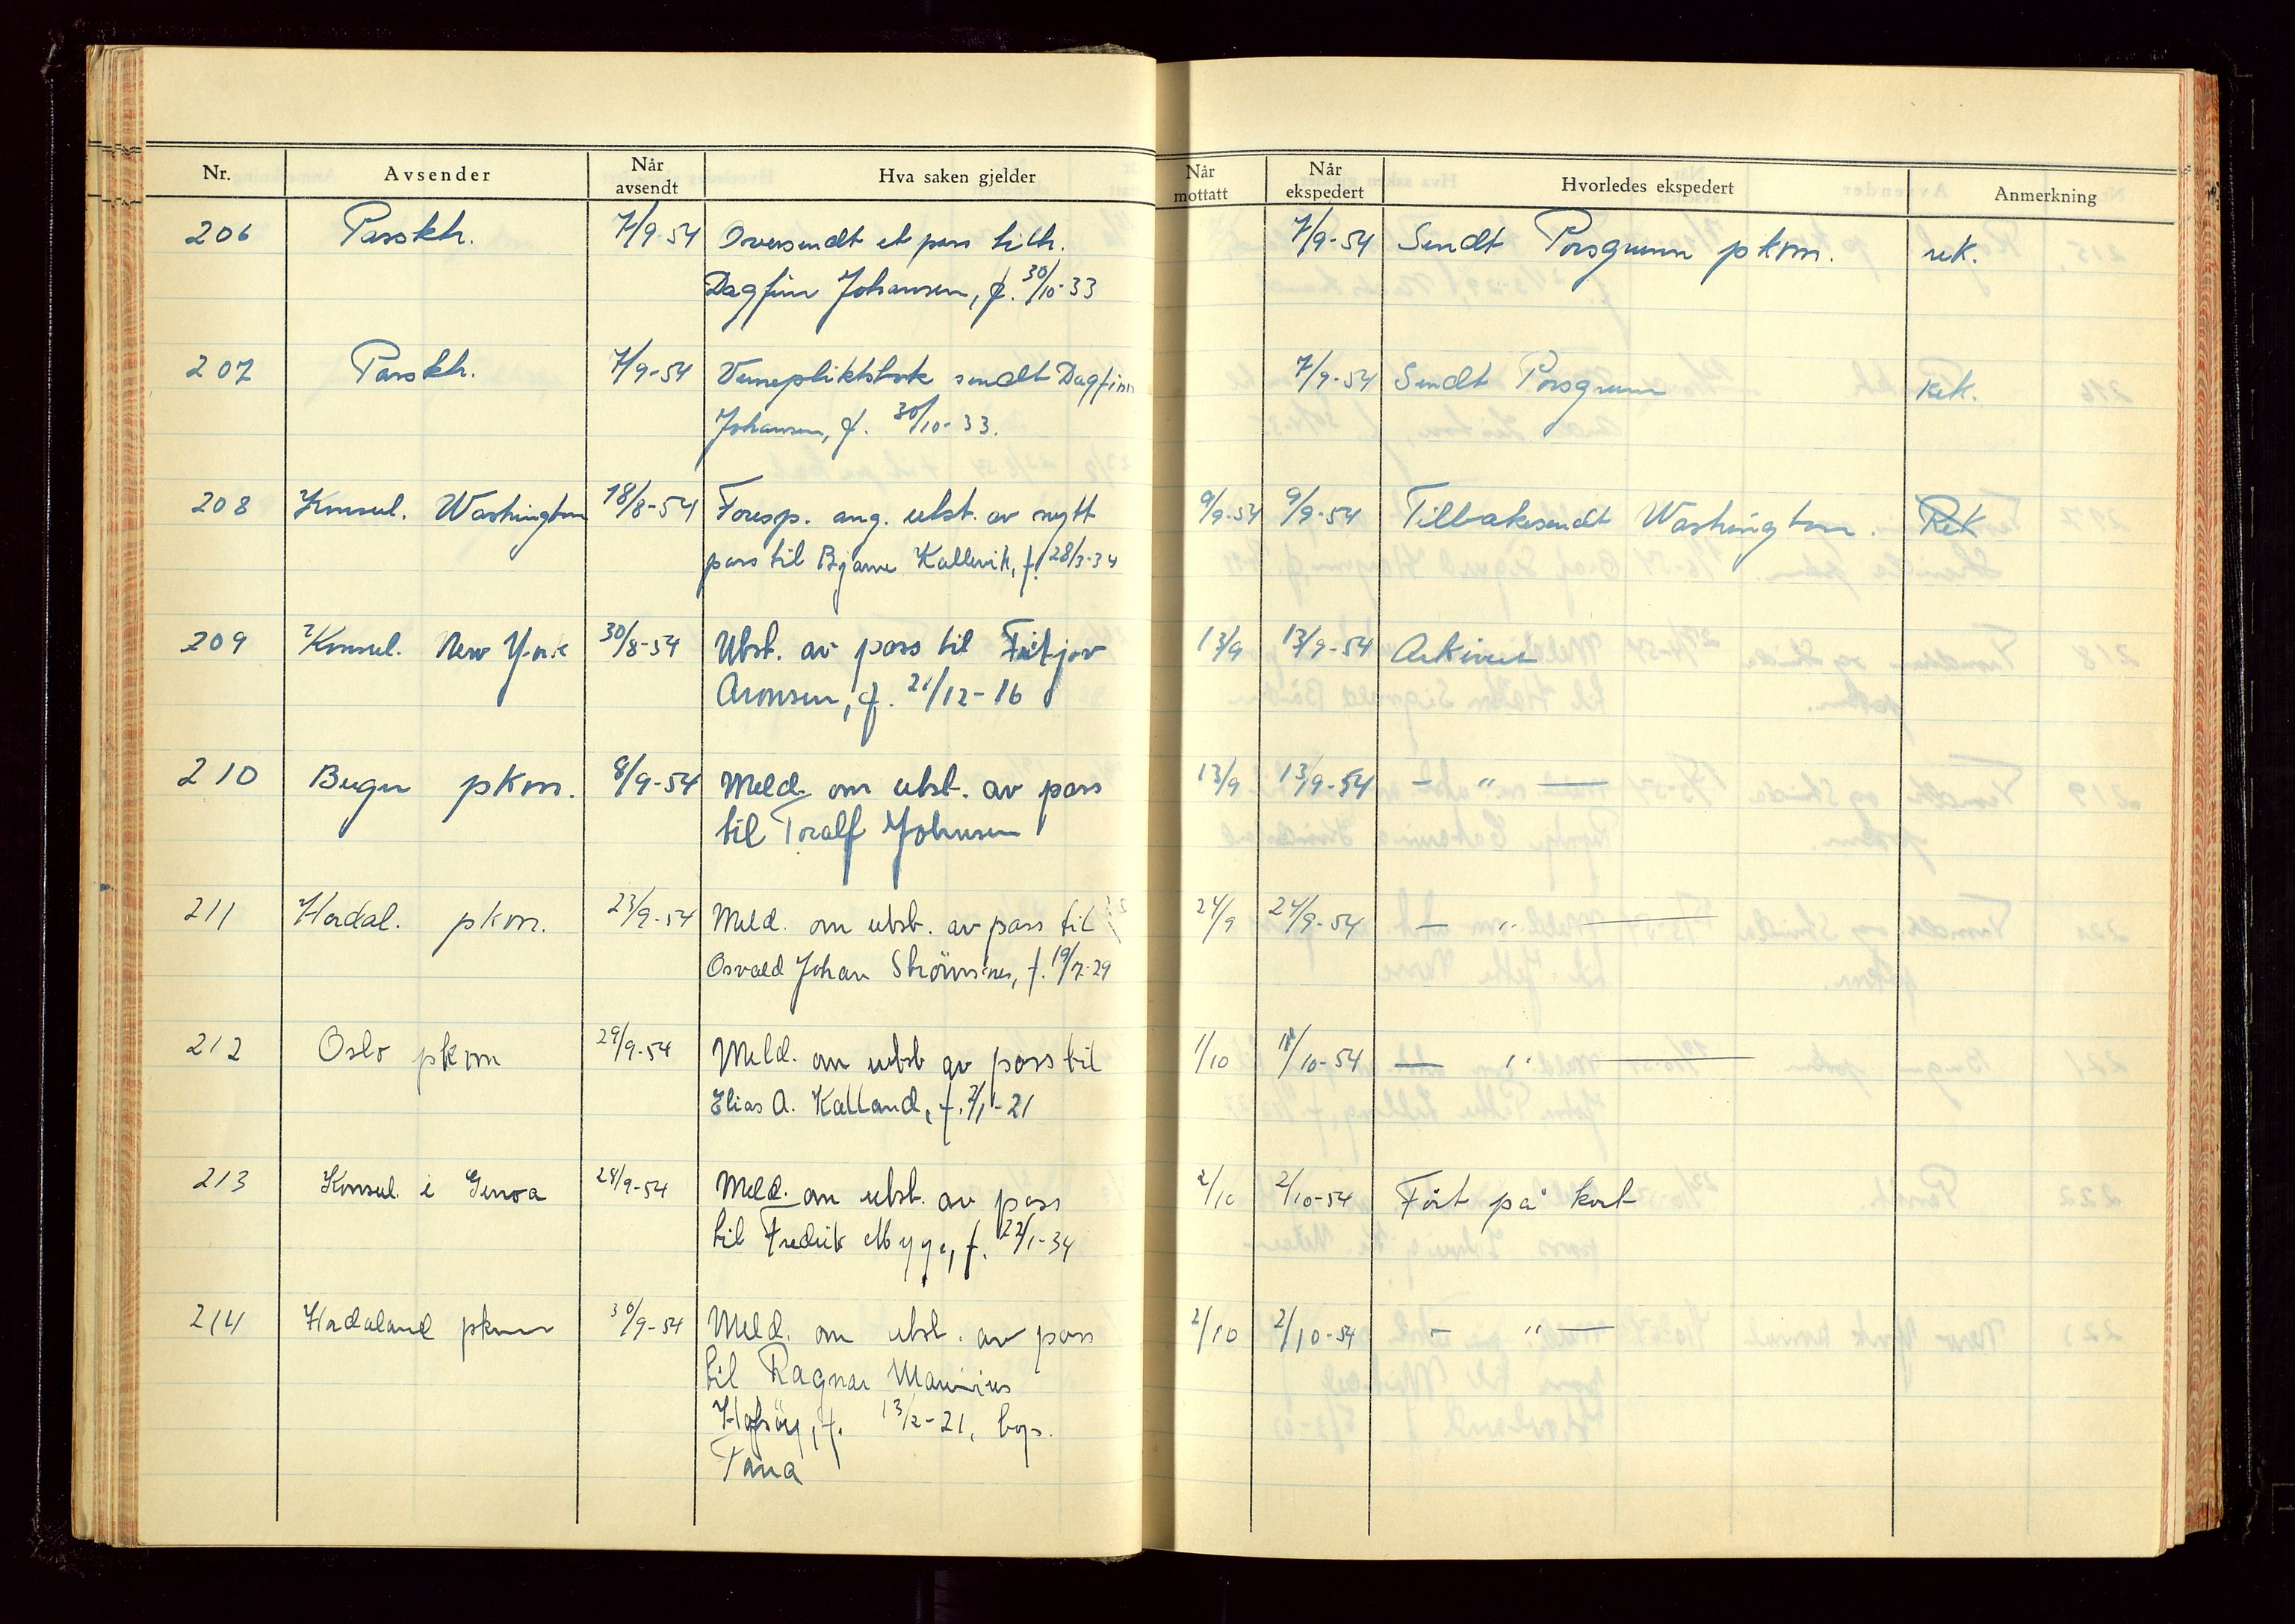 Nr. Avsender Når avsendt Hva saken gjelder Når mottatt Når ekspedert Hvorledes ekspedert Anmerkning
206 Passktr. 7/9-54 Oversendt et pass tilh. 7/9-54 Sendt Porsgrunn pkm. rek.
Dagfinn Johansen, f. 30/10-33
207 Passktr. 7/9-54 Vernepliktsbok sendt Dagfinn 7/9-54 Sendt Porsgrunn rek.
Johansen, f. 30/10-33.
208 Konsul. Washington 18/8-54 Foresp. ang. utst. av nytt 9/9-54 9/9-54 Tilbakesendt Washington. Rek
pass til Bjarne Kallevik, f. 28/3-34
209 Konsul. New York 30/8-54 Utst. av pass til Fritjov 13/9 13/9-54 Arkivert
Aronsen, f. 21/12-16
210 Bergen pkm. 8/9-54 Meld. om utst. av pass 13/9 13/9-54 — " —
til Toralf Johnsen
211 Hordal. pkm. 23/9-54 Meld. om utst. av pass til 24/9 24/9-54 — " —
Osvald Johan Strömsnes, f. 19/7-29
212 Oslo pkm 29/9-54 Meld. om utst av pass til 1/10 1/10-54 — " —
Elias A. Kalland, f. 2/1-21
213 Konsul. i Genoa 28/9-54 Meld. om utst. av pass 2/10 2/10-54 Fört på kort
til Fredrik Mygg, f. 22/1-34
214 Hordaland pkm 30/9-54 Meld. om utst. av pass 2/10 2/10-54 — " —
til Ragnar Marinius
Hofsöy, f. 13/2-21, bop.
Tana